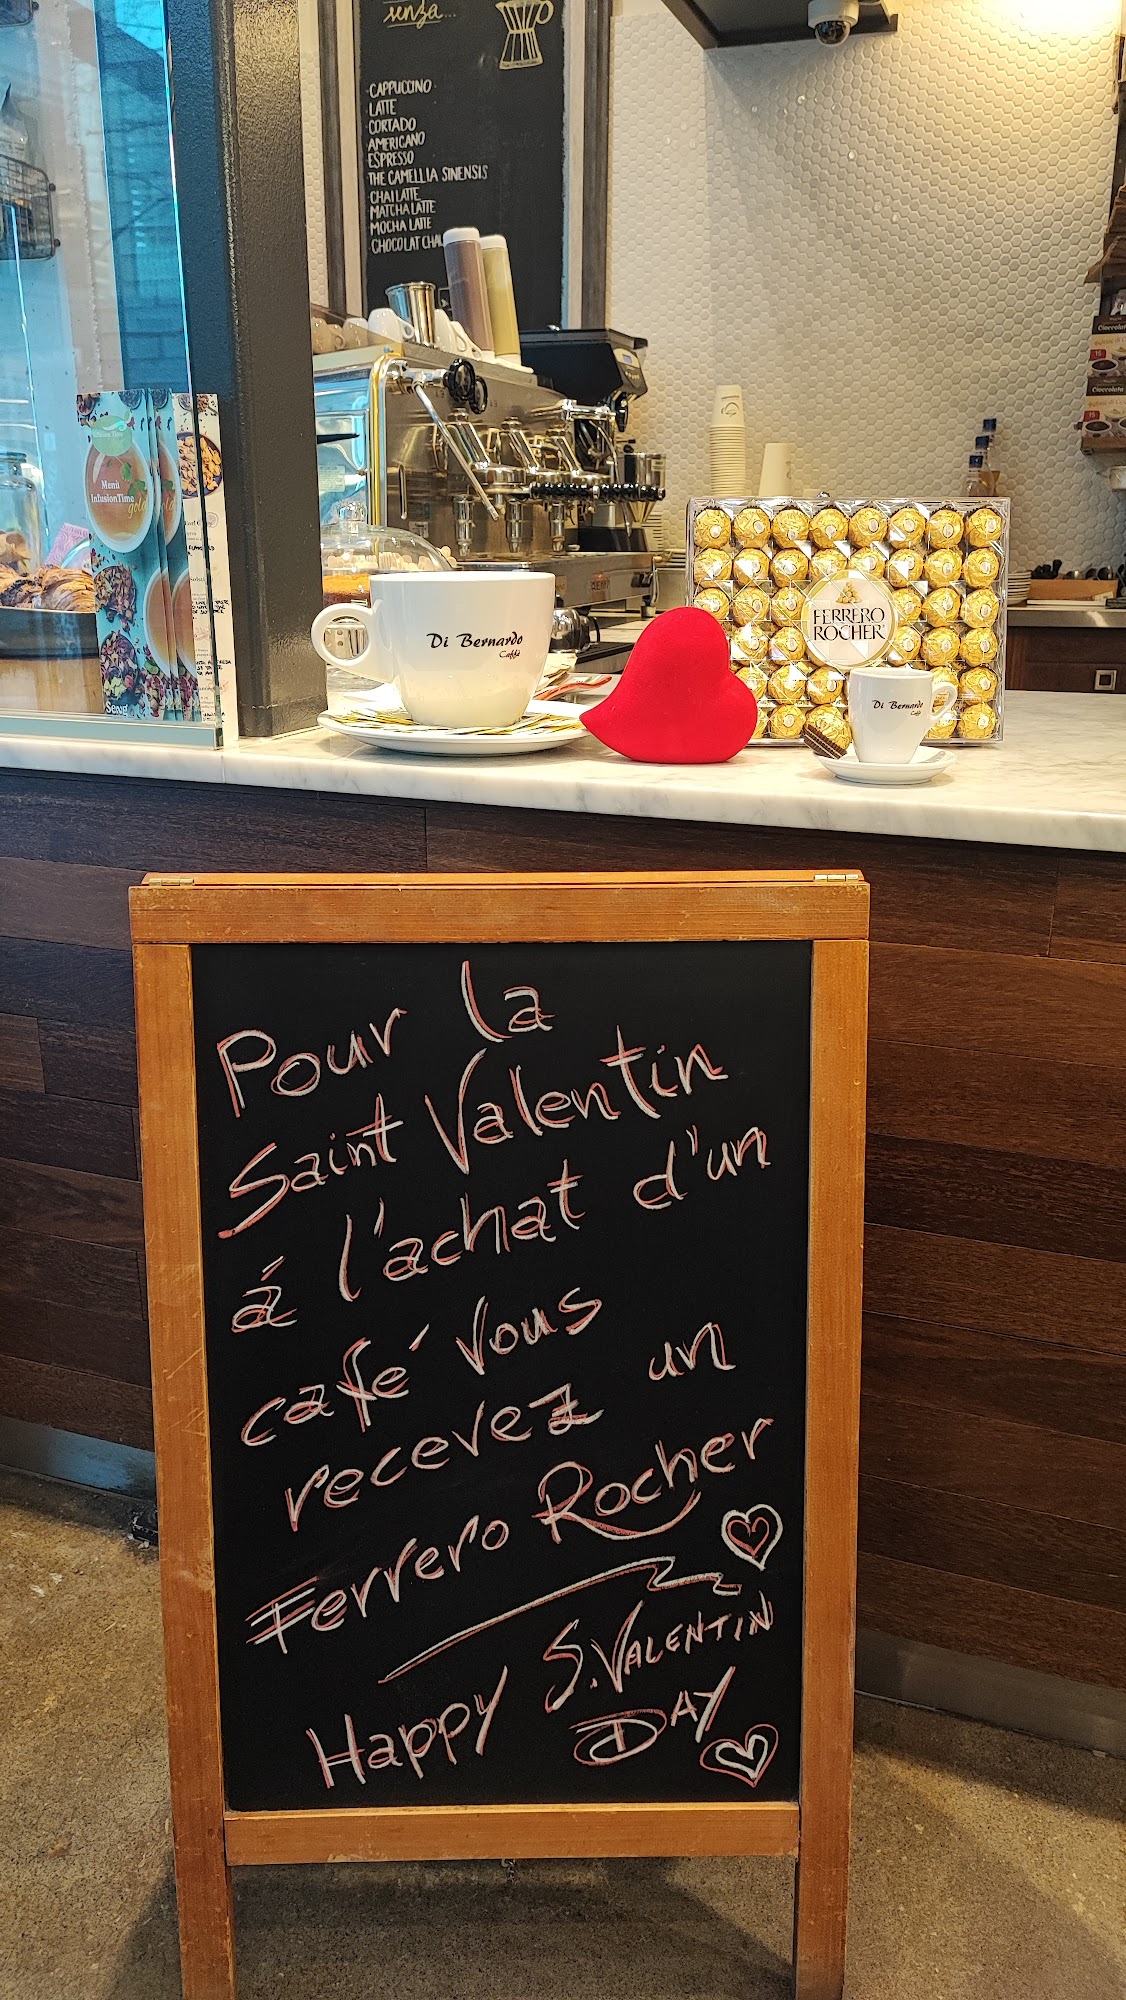 senza...
CAPPUCCINO
LATTE
CORTADO
AMERICANO
ESPRESSO
THE CAMELLIA SINENSIS
CHAI LATTE
MATCHA LATTE
MOCHA LATTE
CHOCOLAT CHAU
Menù
InfusionTime
gold
Di Bernardo
Caffè
FERRERO
ROCHER
Di Bernardo
Caffè
Cioccolata
15
Pour la
Saint Valentin
á l'achat d'un
café vous
recevez un
Ferrero Rocher
Happy S. VALENTIN
DAY